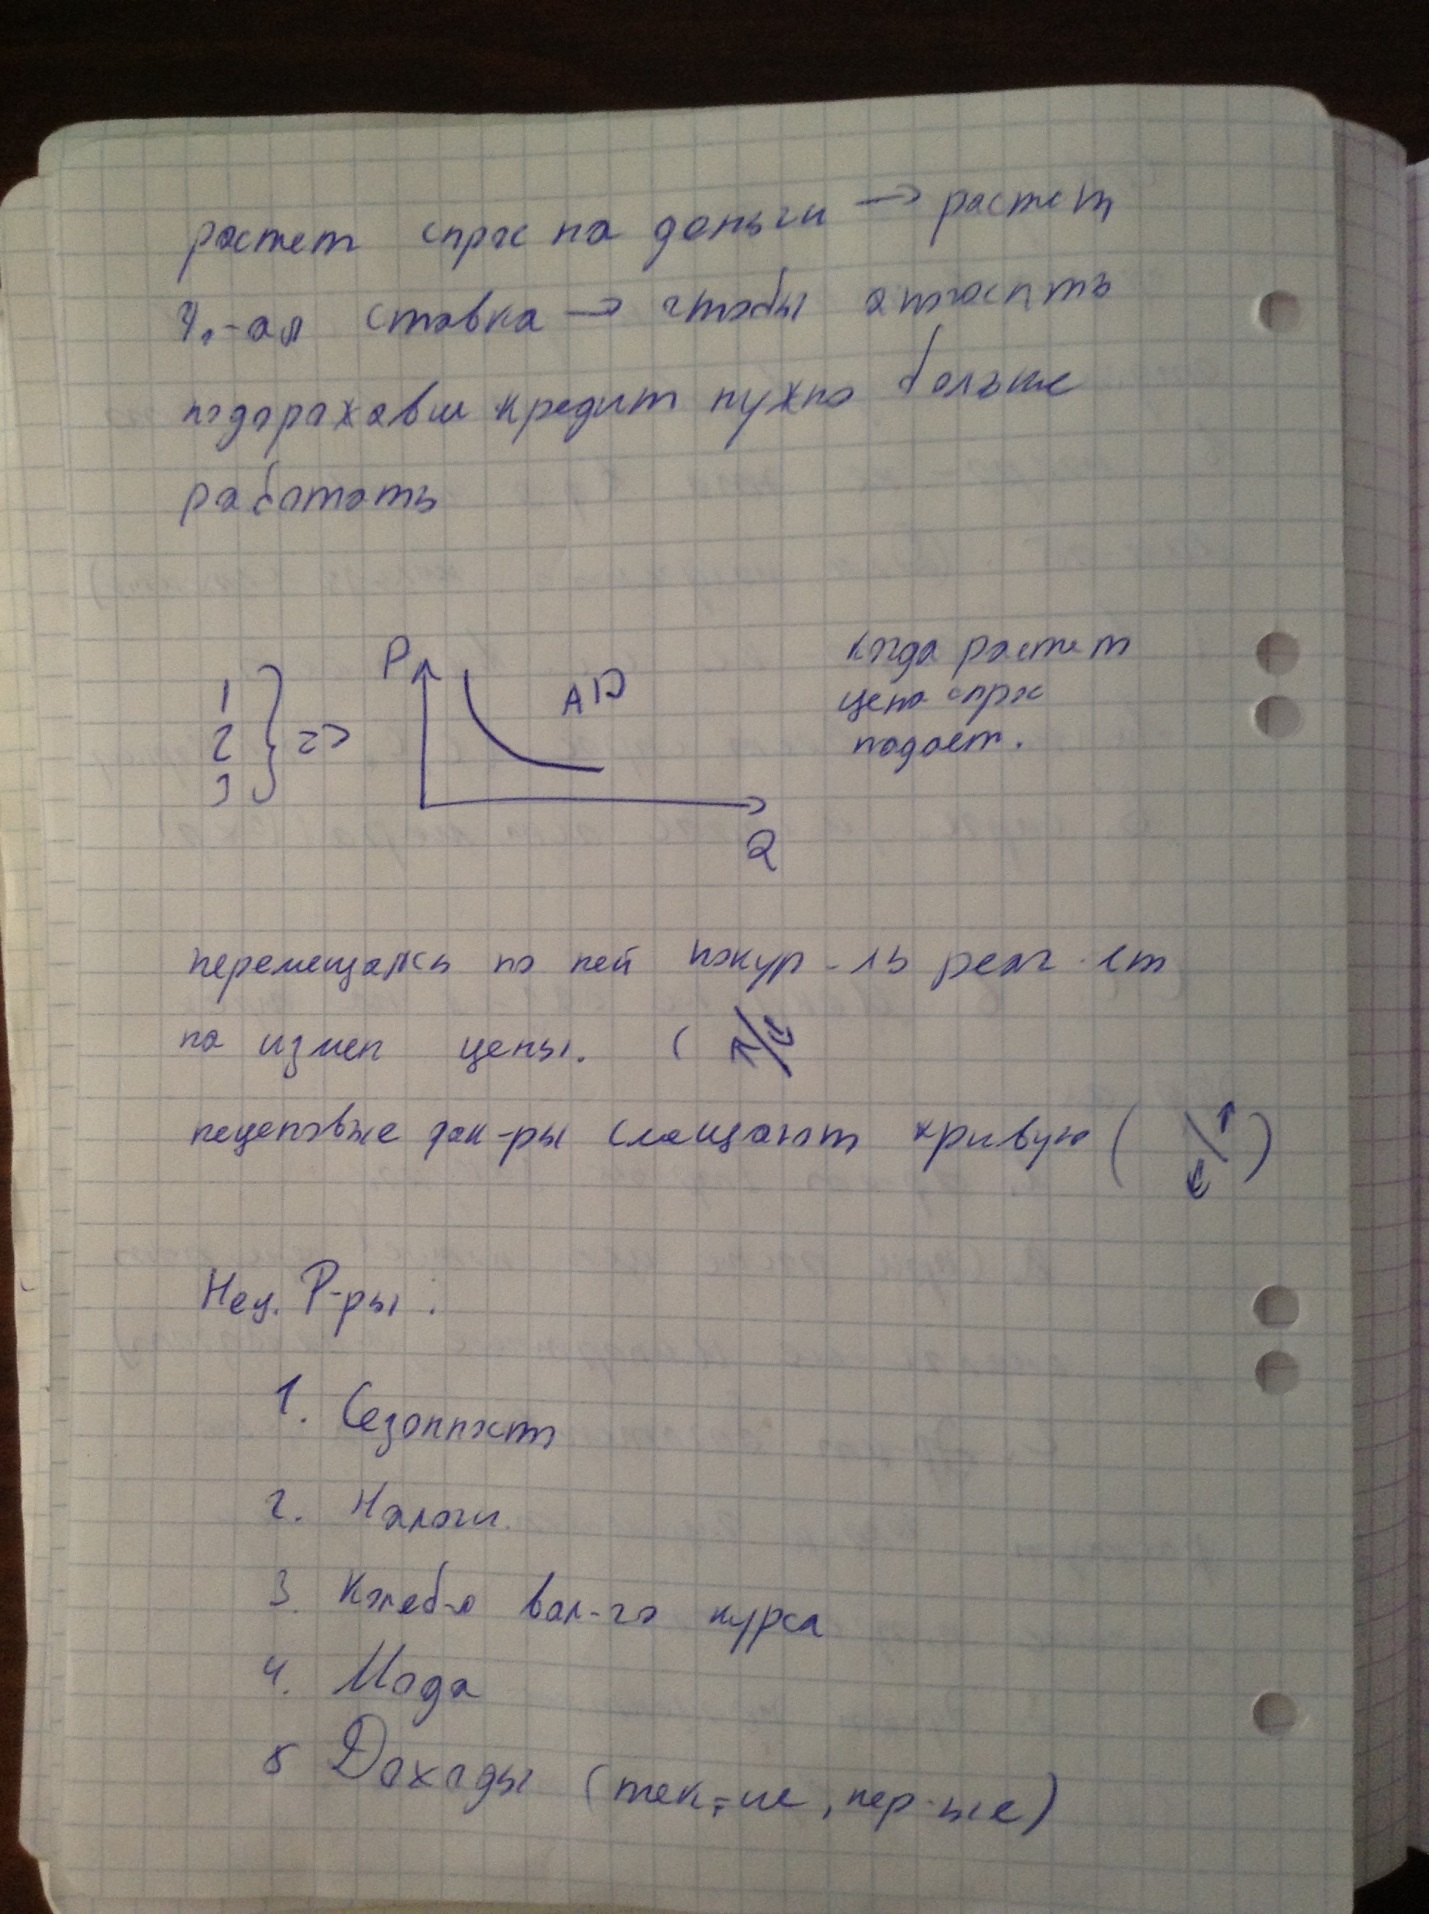 растет спрос на деньги → растет
%-ая ставка → чтобы отгасить
подорожавш кредит нужно больше
работать
P
AD
когда растет
цена спрос
падает.
1
2
3
=>
Q
перемещаясь по ней покуп-ль реаг-ет
на измен цены. (
неценовые фак-ры смещают кривую ( )
Нец. Р-ры:
1. Сезонность
2. Налоги.
3. Колеб-я вал-го курса
4. Мода
5 Доходы (тек-ие, пер-ые)